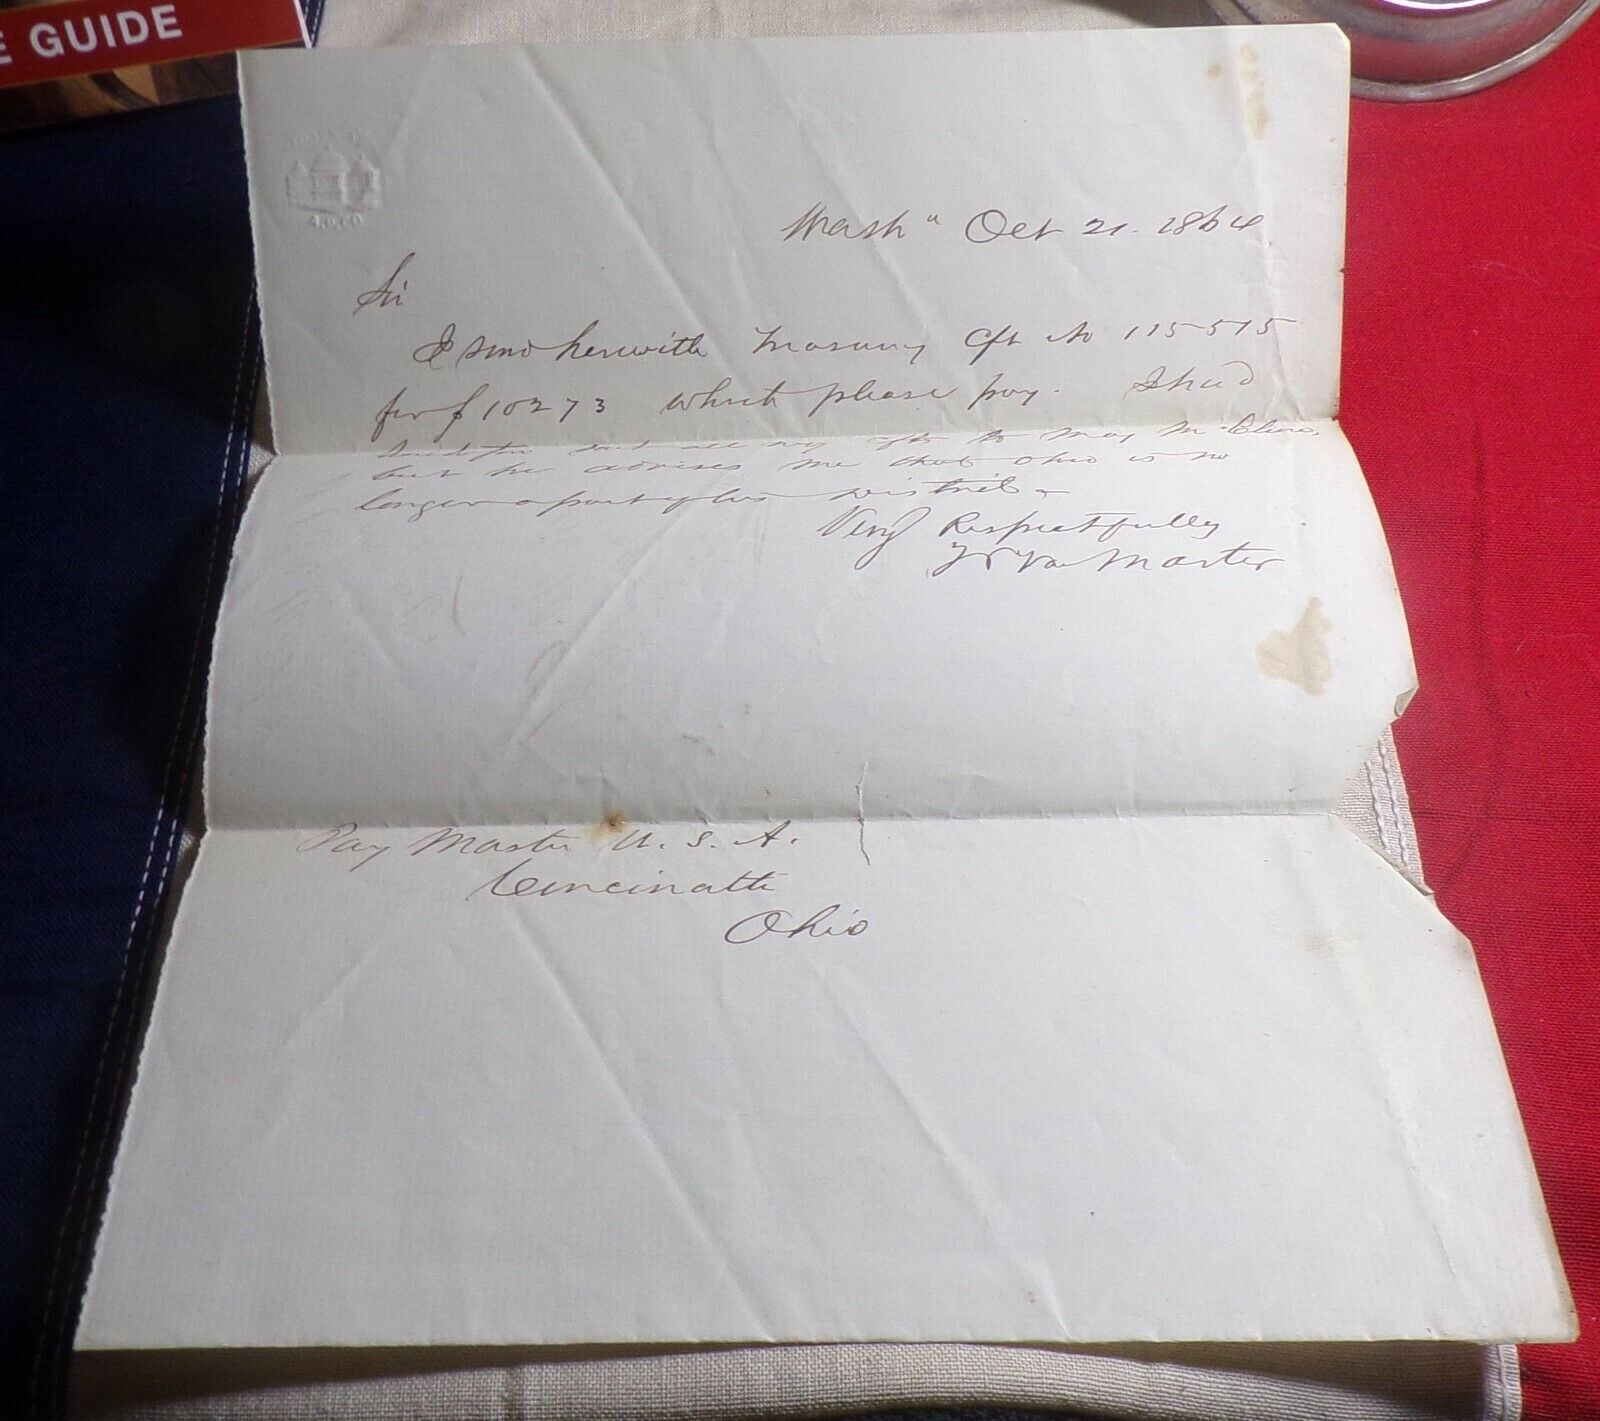 E GUIDE
Wash" Oct 21. 1864
Sir
I send herewith Treasury Cft No 115515
for $ 10273 which please pay. I had
sent all my cfts to Maj McClure,
but he advises me that Ohio is no
longer a part of his District
Very Respectfully
Van Marter
Pay Master U. S. A.
Cincinatti
Ohio